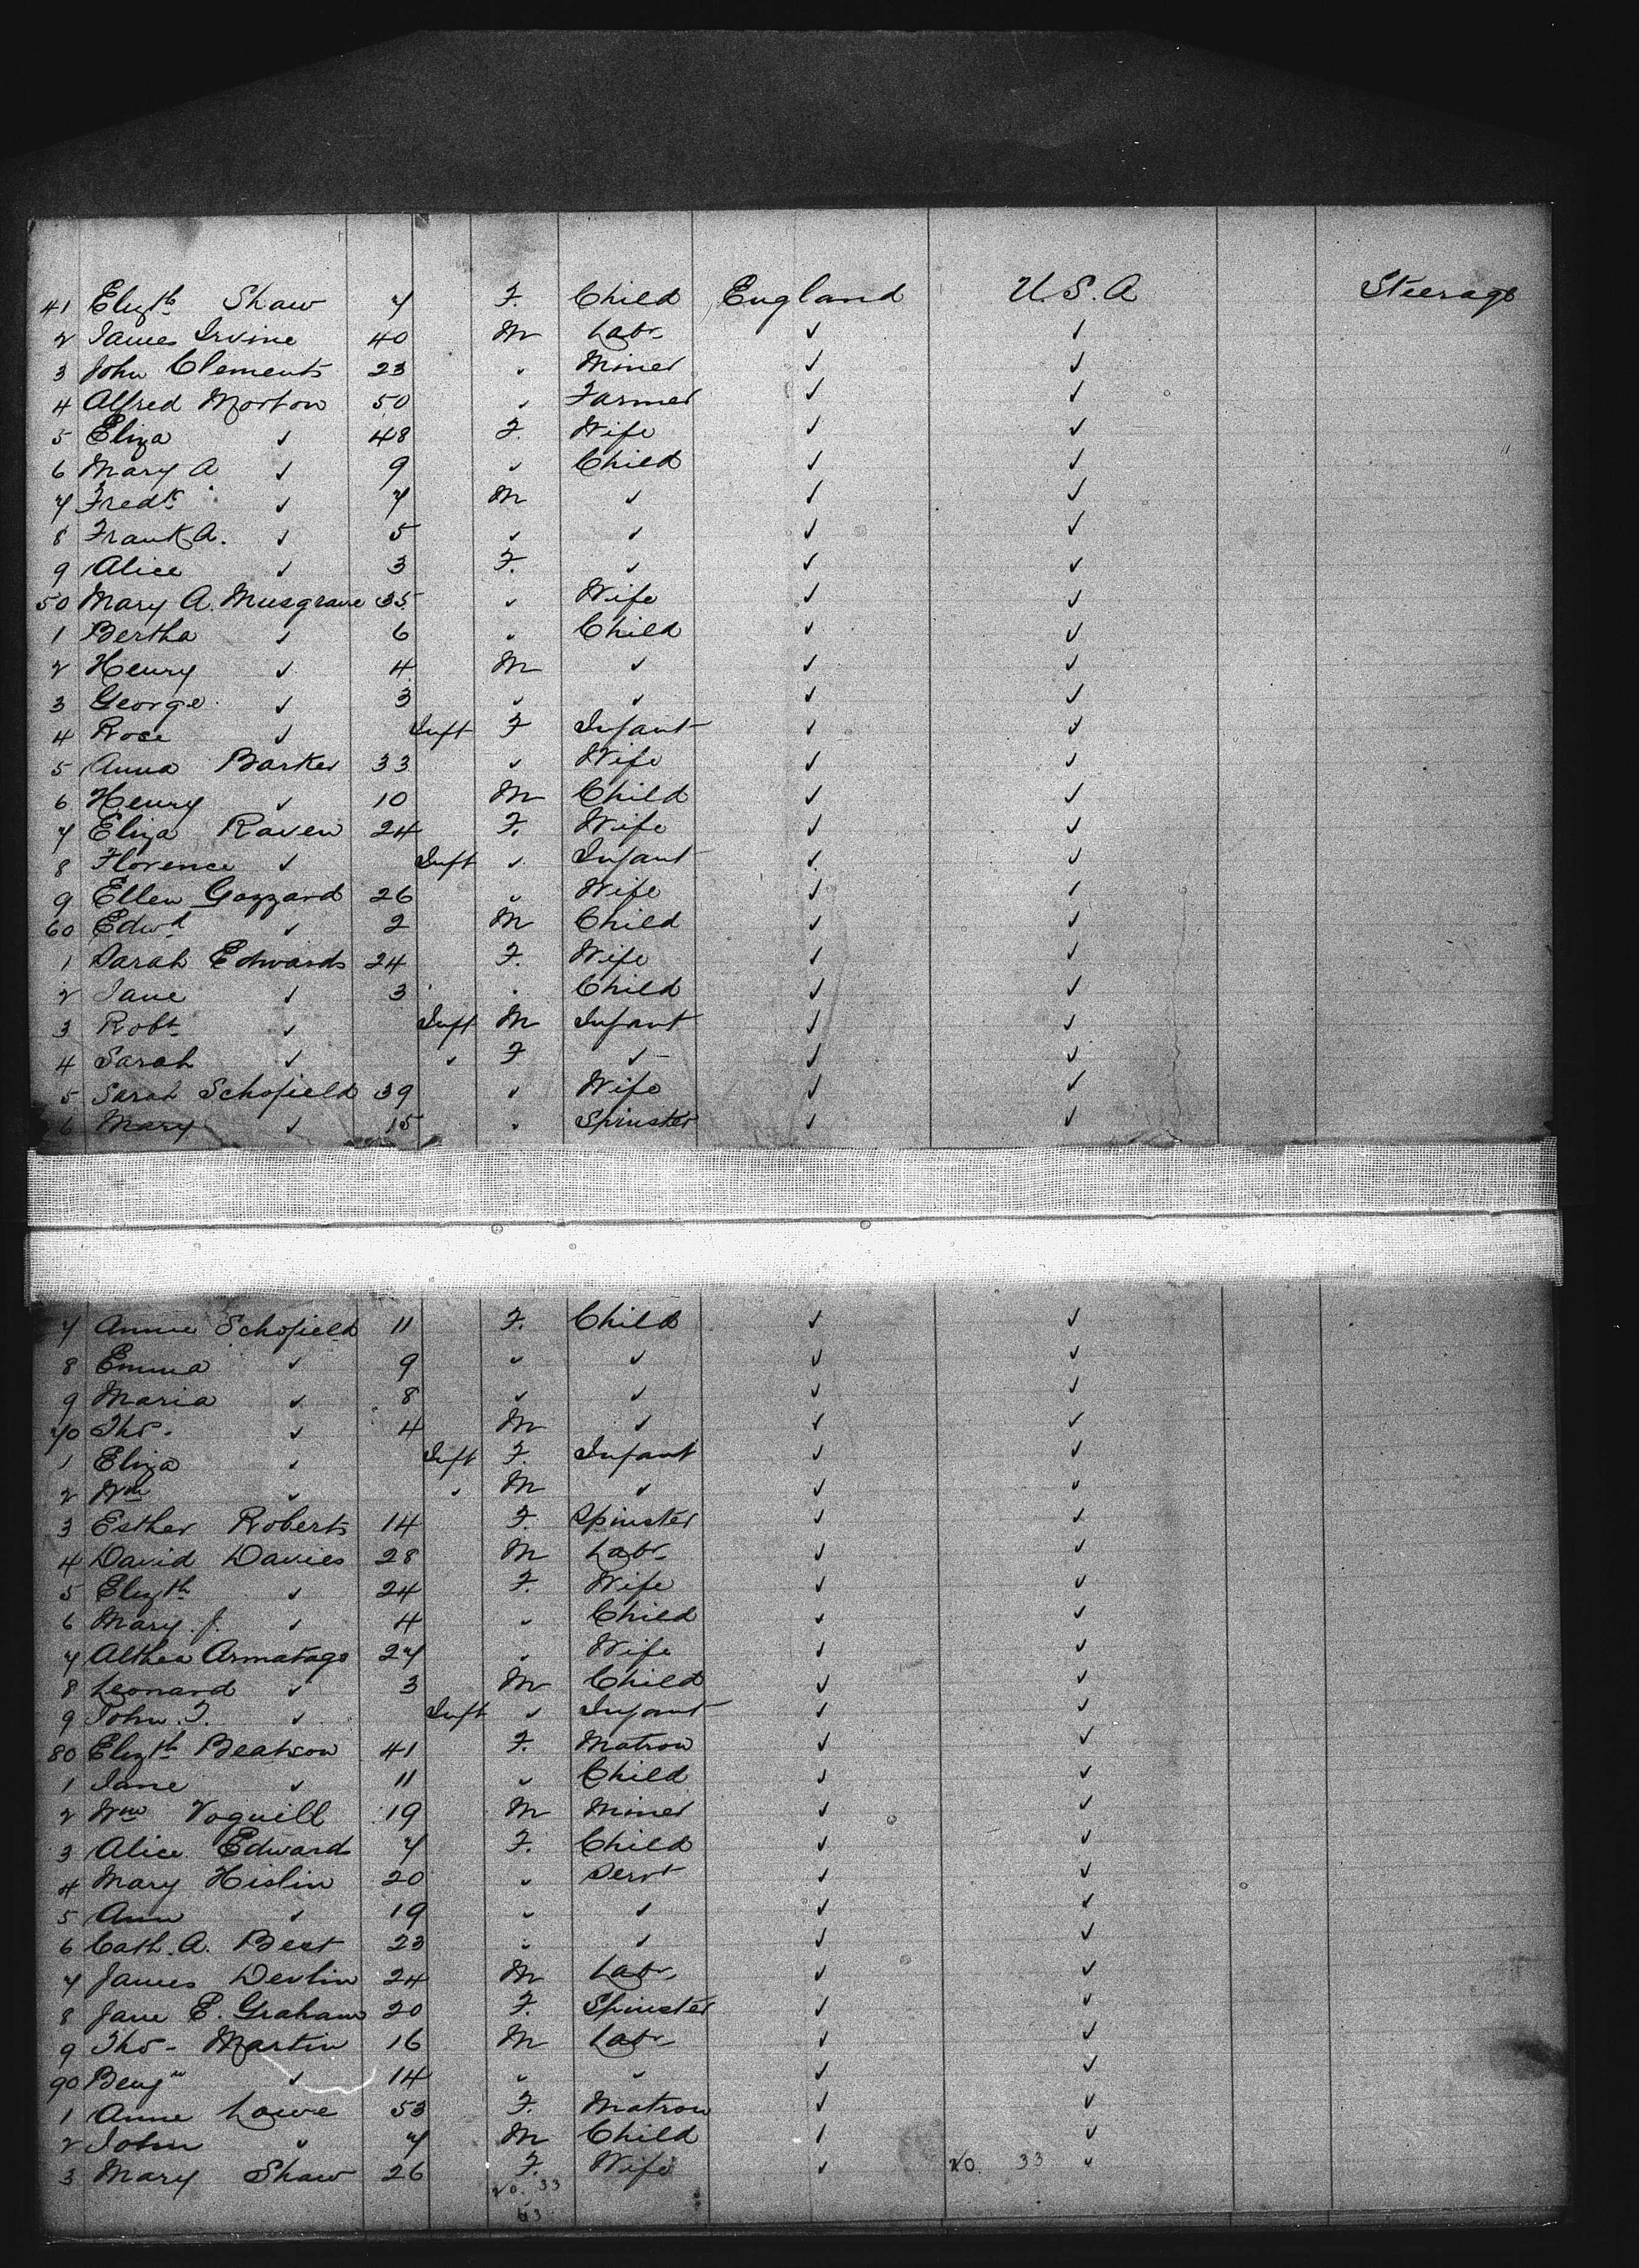 41 Elizth Shaw 7 F. Child England U.S.A Steerage
2 James Irvine 40 M Labr ✓ ✓
3 John Clements 23 ✓ Miner ✓ ✓
4 Alfred Morton 50 ✓ Farmer ✓ ✓
5 Eliza ✓ 48 F. Wife ✓ ✓
6 Mary A ✓ 9 ✓ Child ✓ ✓
7 Fredk ✓ 7 M ✓ ✓ ✓
8 Frank A. ✓ 5 ✓ ✓ ✓ ✓
9 Alice ✓ 3 F. ✓ ✓ ✓
50 Mary A. Musgrave 35 ✓ Wife ✓ ✓
1 Bertha ✓ 6 ✓ Child ✓ ✓
2 Henry ✓ 4 M ✓ ✓ ✓
3 George ✓ 3 ✓ ✓ ✓ ✓
4 Rose ✓ Inft F Infant ✓ ✓
5 Anna Barker 33 ✓ Wife ✓ ✓
6 Henry ✓ 10 M Child ✓ ✓
7 Eliza Raven 24 F. Wife ✓ ✓
8 Florence ✓ Inft ✓ Infant ✓ ✓
9 Ellen Gazzard 26 ✓ Wife ✓ ✓
60 Edwd ✓ 2 M Child ✓ ✓
1 Sarah Edwards 24 F. Wife ✓ ✓
2 Jane ✓ 3 ✓ Child ✓ ✓
3 Robt ✓ Inft M Infant ✓ ✓
4 Sarah ✓ ✓ F ✓ ✓ ✓
5 Sarah Schofield 39 ✓ Wife ✓ ✓
6 Mary ✓ 15 ✓ Spinster ✓ ✓
7 Annie Schofield 11 F. Child ✓ ✓
8 Emma ✓ 9 ✓ ✓ ✓ ✓
9 Maria ✓ 8 ✓ ✓ ✓ ✓
70 Thos. ✓ 4 M ✓ ✓ ✓
1 Eliza ✓ Inft F. Infant ✓ ✓
2 Wm ✓ ✓ M ✓ ✓ ✓
3 Esther Roberts 14 F. Spinster ✓ ✓
4 David Davies 28 M Labr ✓ ✓
5 Elizth ✓ 24 F. Wife ✓ ✓
6 Mary J. ✓ 4 ✓ Child ✓ ✓
7 Althea Armatage 27 ✓ Wife ✓ ✓
8 Leonard ✓ 3 M Child ✓ ✓
9 John T. ✓ Inft ✓ Infant ✓ ✓
80 Elizth Beatson 41 F. Matron ✓ ✓
1 Jane ✓ 11 ✓ Child ✓ ✓
2 Wm Voguill 19 M Miner ✓ ✓
3 Alice Edward 7 F. Child ✓ ✓
4 Mary Hislin 20 ✓ Servt ✓ ✓
5 Ann ✓ 19 ✓ ✓ ✓ ✓
6 Cath. A. Best 23 ✓ ✓ ✓ ✓
7 James Devlin 24 M Labr ✓ ✓
8 Jane E. Graham 20 F. Spinster ✓ ✓
9 Thos- Martin 16 M Labr ✓ ✓
90 Benjn ✓ 14 ✓ ✓ ✓ ✓
1 Anne Lowe 53 F. Matron ✓ ✓
2 John ✓ 7 M Child ✓ ✓
3 Mary Shaw 26 F. Wife ✓ 20. 33 ✓
20. 33